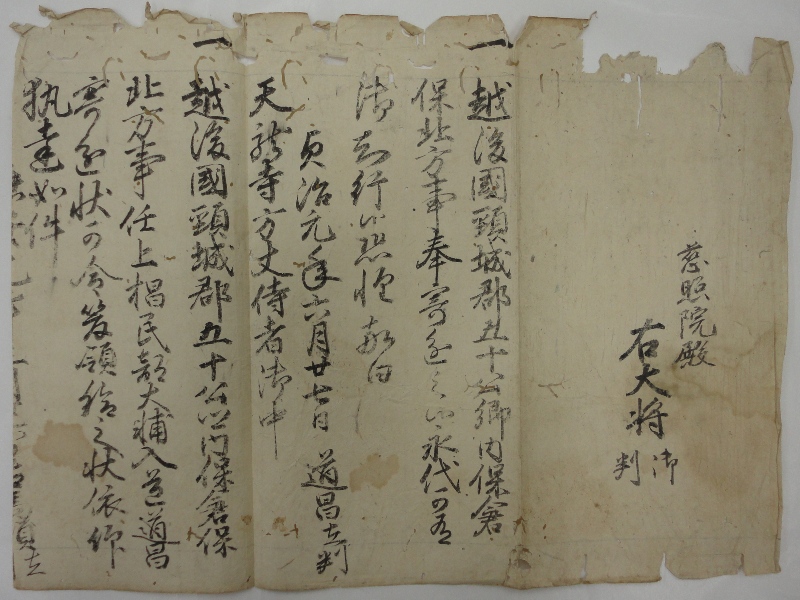 慈照院殿
右大将御判
一越後國頸城郡五十公郷内保倉
保北方事奉寄進之候永代可有
御知行候恐惶敬白
貞治元年六月廿七日 道昌在判
天龍寺方丈侍者御中
一越後國頸城郡五十公郷内保倉保
北方事任上椙民部大輔入道道昌
寄進状可令管領給之状依仰
執達如件